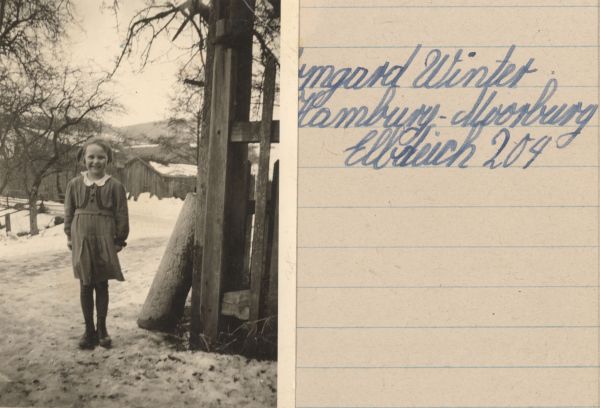 rmgard Winter.
Hamburg-Moorburg
Elbdeich 209